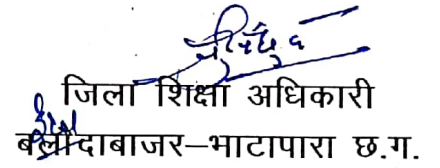 जिला शिक्षा अधिकारी
बलौदाबाजर–भाटापारा छ.ग.